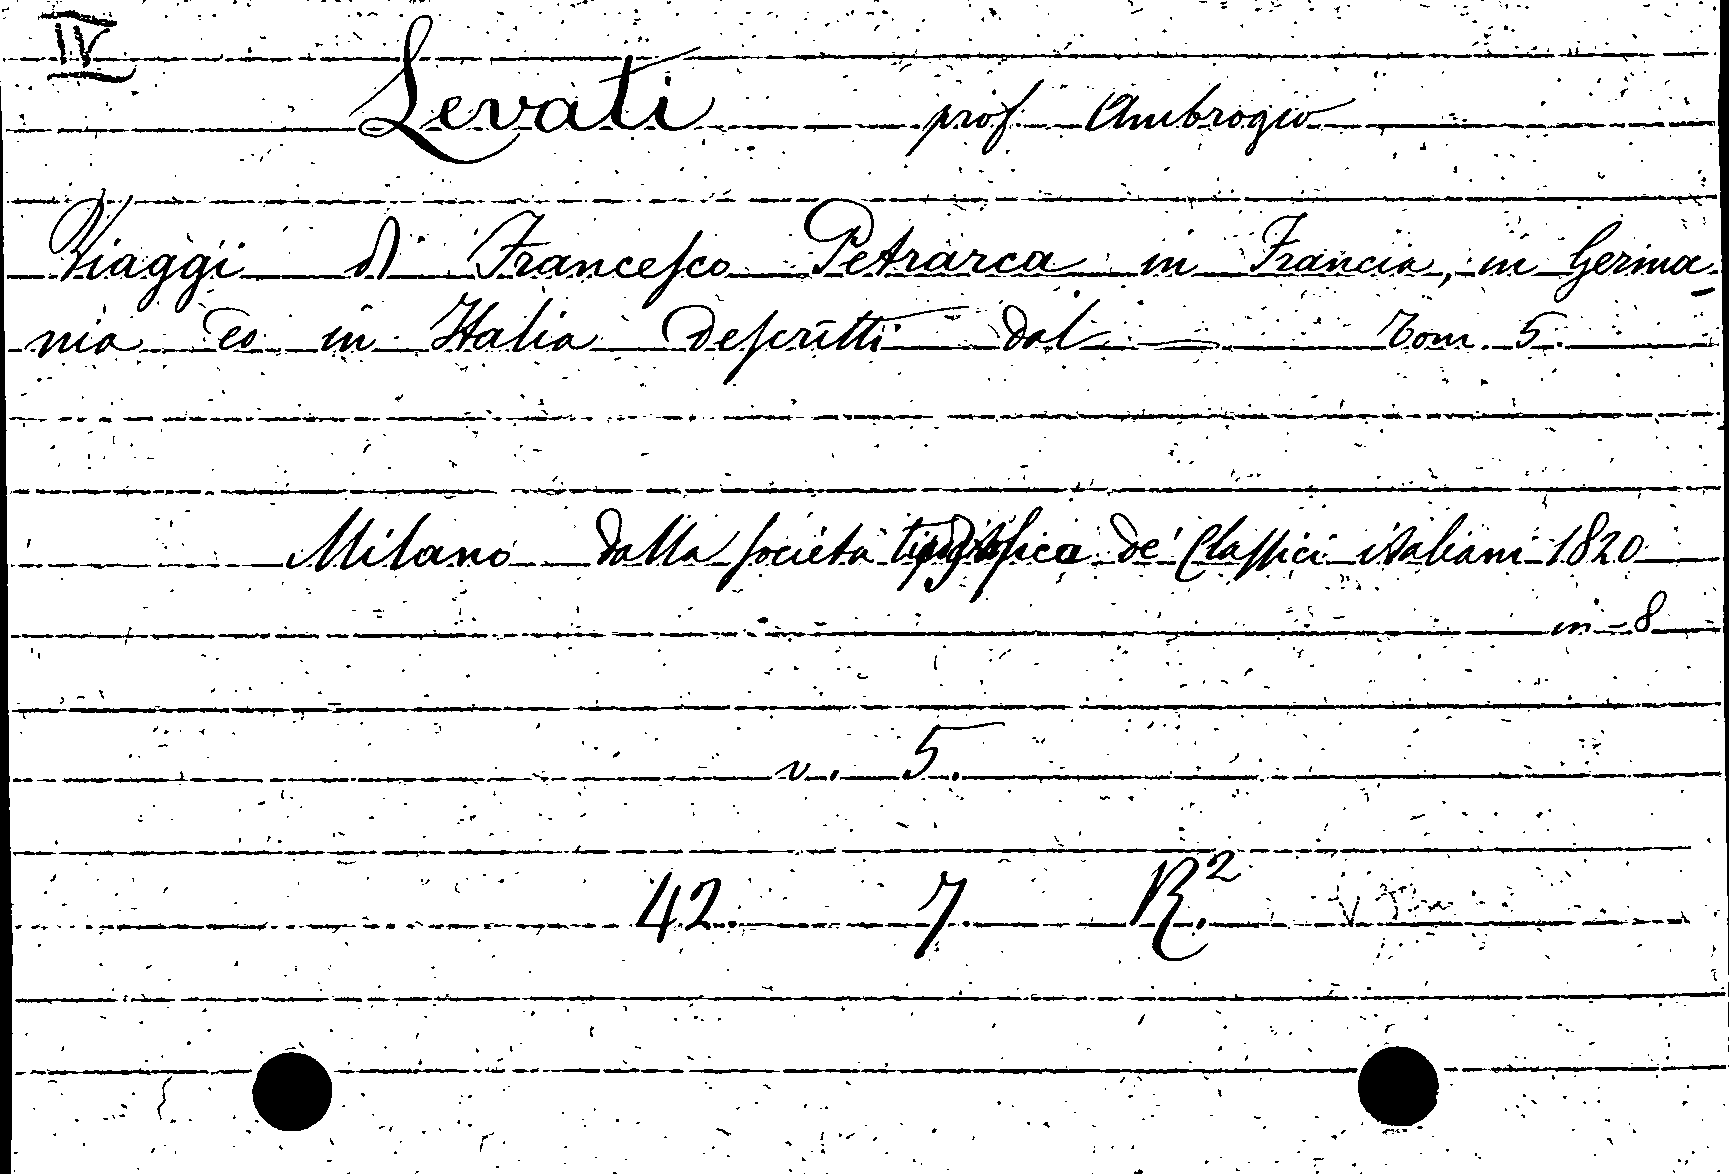 IV
Levati prof Ambrogio
Viaggi di Francesco Petrarca in Francia, in Germa-
nia ed in Italia descritti dal — Tom. 5.
Milano dalla società tipografica de' Classici italiani 1820
in-8
v. 5.
42. 7. R.²